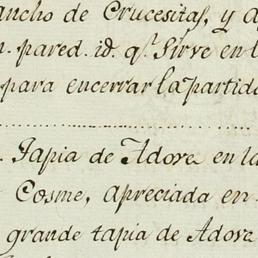 ancho de Crucesitas, y a
n. pared. id. q.e Sirve en l
para encerrar la partid
. Tapia de Adove en la
Cosme, apreciada en
grande tapia de Adove